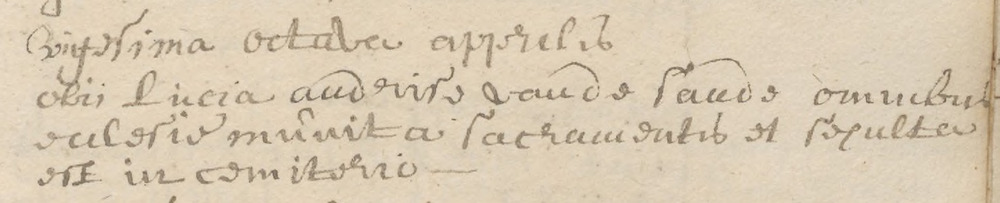 vigesima octava apperilis
obii Lucia andrise vande sande omnibus
eclesie munita sacramentis et sepulta
est in cemiterio —